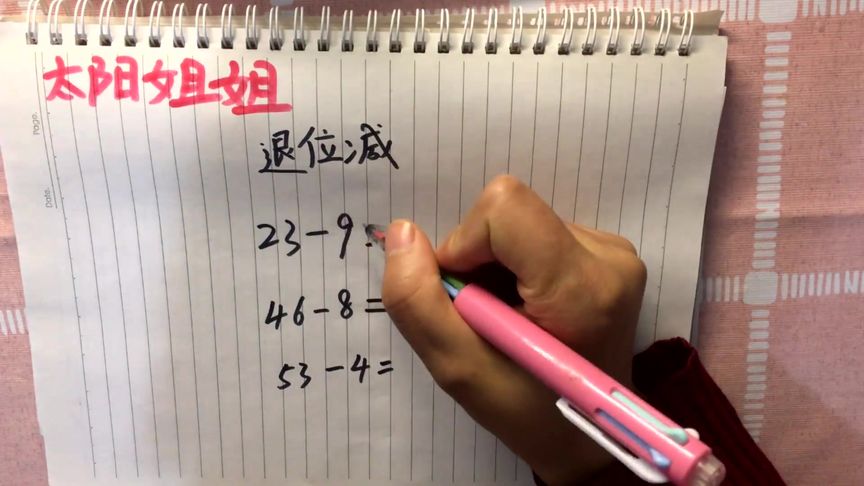 太阳姐姐
Page.
Date.
退位减
23-9=
46-8=
53-4=